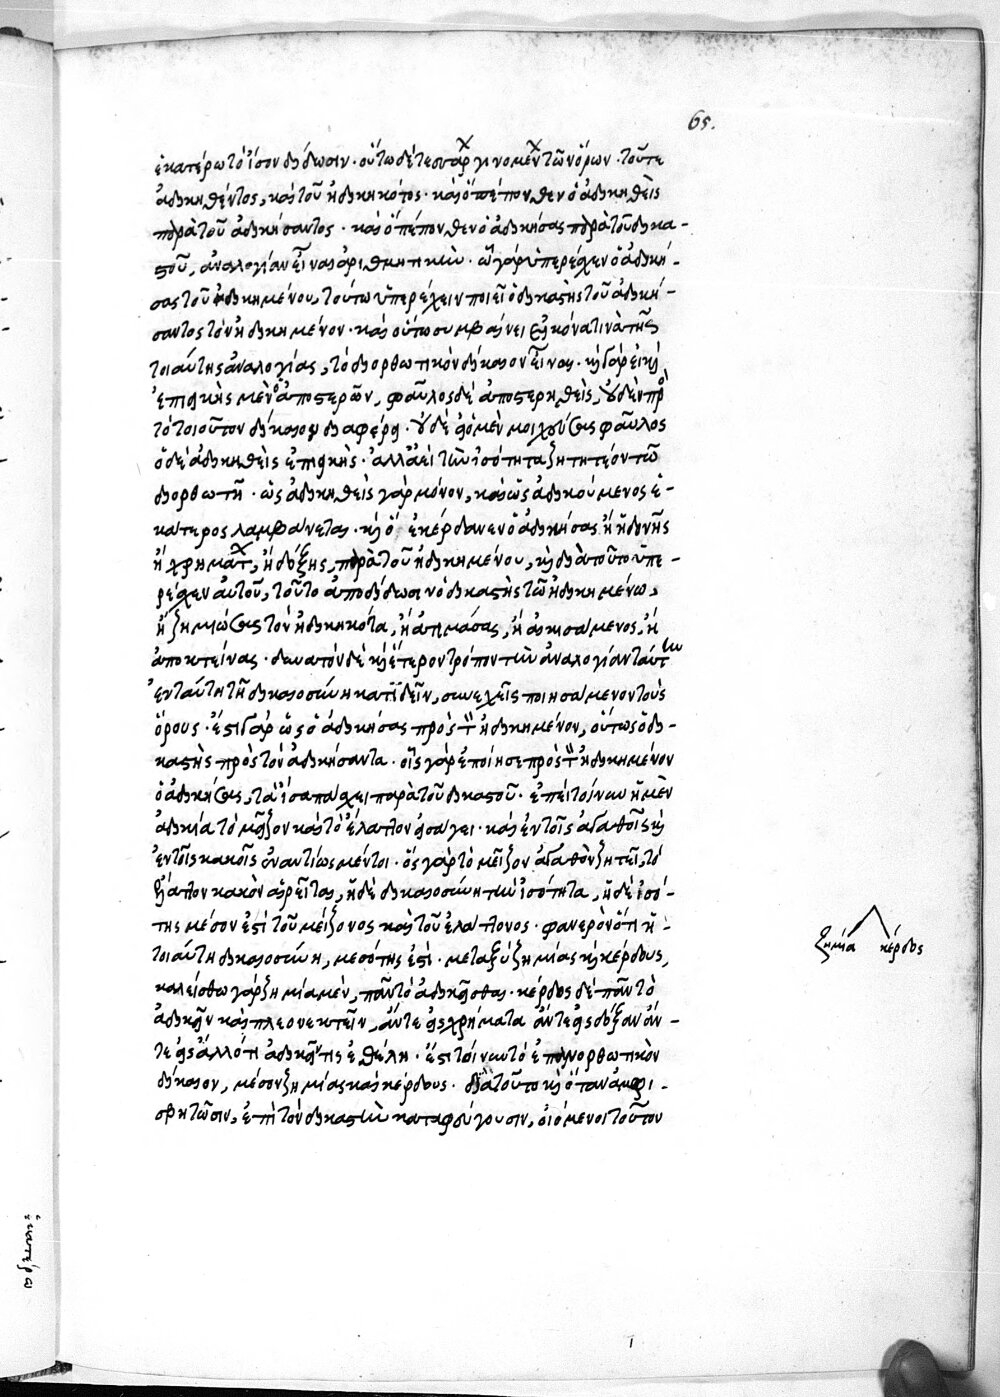 65.
ἑκατέρω τὸ ἴσον διδῶσιν · οὕτω δὲ τεσσάρων γινομένων τῶν ὅρων · τοῦ τε
ἀδικηθέντος, καὶ τοῦ ἠδικηκότος · καὶ ὃ πέπονθεν ὁ ἀδικηθεὶς
παρὰ τοῦ ἀδικήσαντος · καὶ ὃ πέπονθεν ὁ ἀδικήσας παρὰ τοῦ δικα-
στοῦ, ἀναλογίαν εἶναι ἀριθμητικὴν · ᾧ γὰρ ὑπερέχεν ὁ ἀδική-
σας τοῦ ἠδικημένου, τούτω ὑπερέχειν ποιεῖ ὁ δικαστὴς τοῦ ἀδική-
σαντος τὸν ἠδικημένον · καὶ οὕτω συμβαίνει εἰκόνα τινὰ τῆς
τοιαύτης ἀναλογίας, τὸ διορθωτικὸν δίκαιον εἶναι · καὶ γὰρ εἰ καὶ
ἐπιεικὴς μὲν ὁ ἀποστερῶν, φαῦλος δὲ ἀποστερηθεὶς, οὐδὲν πρὸς
τὸ τοιοῦτον δίκαιον διαφέρει · οὐδὲ εἰ ὁ μὲν μοιχεύσας φαῦλος
ὁ δὲ ἀδικηθεὶς ἐπιεικὴς · ἀλλ' ἀεὶ τὴν ἰσότητα ζητητέον τῶ
διορθωτῆ · ὡς ἀδικηθεὶς γὰρ μόνον, καὶ ὡς ἀδικούμενος ἑ-
κάτερος λαμβάνεται · καὶ ὃ ἐκέρδανεν ὁ ἀδικήσας ἢ ἡδονῆς
ἢ χρημάτων, ἢ δόξης, παρὰ τοῦ ἠδικημένου, καὶ διὰ τοῦτο ὑπε-
ρέχεν αὐτοῦ, τοῦτο ἀποδίδωσιν ὁ δικαστὴς τῶ ἠδικημένω,
ἢ ζημιώσας τὸν ἠδικηκότα, ἢ ἀτιμάσας, ἢ αἰκισάμενος, ἢ
ἀποκτείνας · δυνατὸν δὲ καὶ ἕτερον τρόπον τὴν ἀναλογίαν ταύτην
ἐν ταύτη τῆ δικαιοσύνη κατιδεῖν, συνεχεῖς ποιησάμενον τοὺς
ὅρους · ἔστι γὰρ ὡς ὁ ἀδικήσας πρὸς τὸν ἠδικημένον, οὕτως ὁ δι-
καστὴς πρὸς τὸν ἀδικήσαντα · οἷς γὰρ ἐποίησε πρὸς τὸν ἠδικημένον
ὁ ἀδικήσας, τὰ ἴσα πάσχει παρὰ τοῦ δικαστοῦ · ἐπεὶ τοίνυν ἡ μὲν
ἀδικία τὸ μεῖζον καὶ τὸ ἔλαττον εἰσάγει · καὶ ἐν τοῖς ἀγαθοῖς καὶ
ἐν τοῖς κακοῖς ἐναντίως μέντοι · ὃς γὰρ τὸ μεῖζον ἀγαθὸν ζητεῖ, τὸ
ἔλαττον κακὸν αἱρεῖται, ἡ δὲ δικαιοσύνη τὴν ἰσότητα, ἡ δὲ ἰσό-
της μέσον ἐστὶ τοῦ μείζονος καὶ τοῦ ἐλάττονος · φανερὸν ὅτι ἡ
τοιαύτη δικαιοσύνη, μεσότης ἐστὶ · μεταξὺ ζημίας καὶ κέρδους,
καλείσθω γὰρ ζημία μὲν, πᾶν τὸ ἀδικεῖσθαι · κέρδος δὲ πᾶν τὸ
ἀδικεῖν καὶ πλεονεκτεῖν, ἄν τε εἰς χρήματα ἄν τε εἰς δόξαν ἄν
τε εἰς ἄλλό τι ἀδικεῖν τις ἐθέλη · ἔστι τοίνυν τὸ ἐπανορθωτικὸν
δίκαιον, μέσον ζημίας καὶ κέρδους · διὰ τοῦτο καὶ ὅταν ἀμφι-
σβητῶσιν, ἐπὶ τὸν δικαστὴν καταφεύγουσιν, οἰόμενοι τοῦτον
ζημία κέρδος
ἑκατέρω